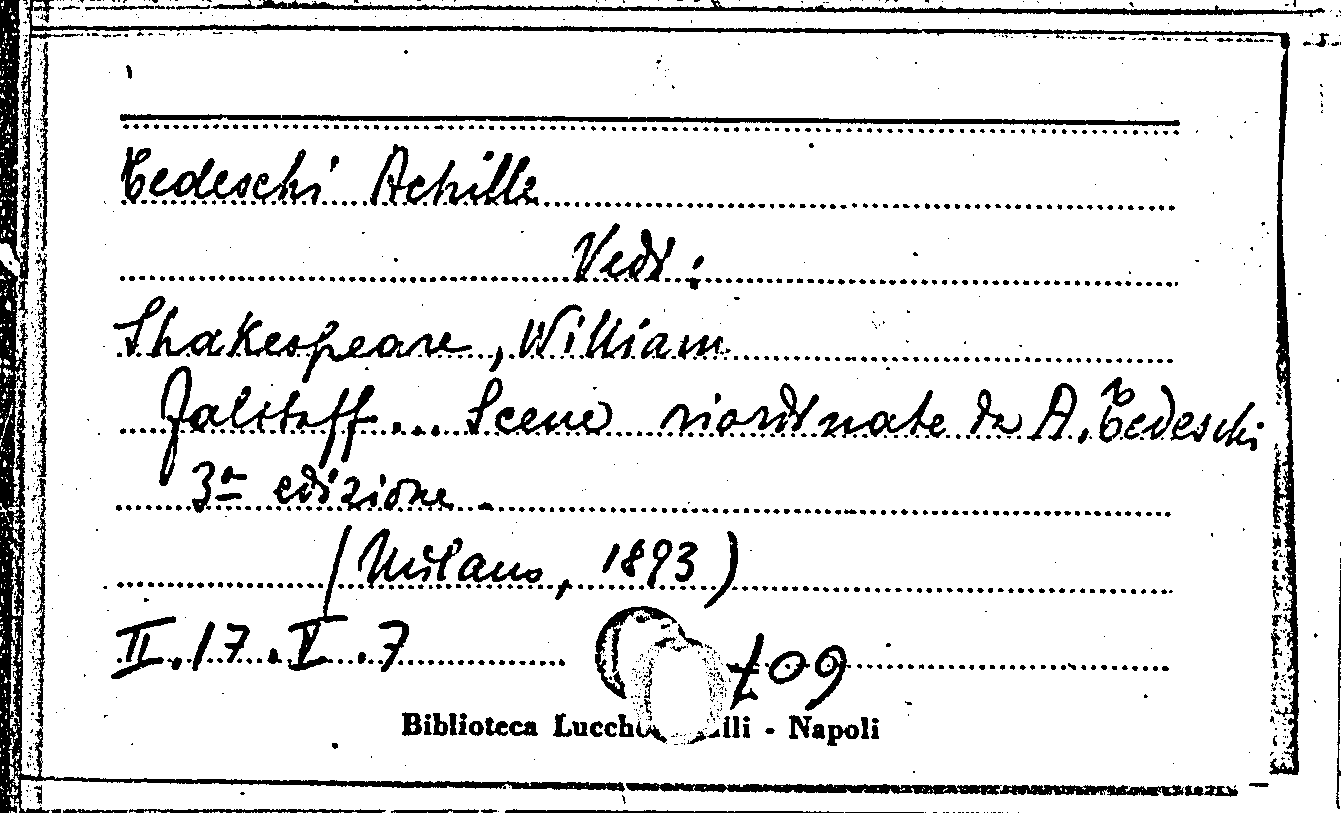 Tedeschi Achille
Vedi:
Shakespeare, William
Falstaff... Scene riordinate da A. Tedeschi
3ª edizione.
(Milano, 1893)
II.17.V.7 709
Biblioteca Lucch lli - Napoli